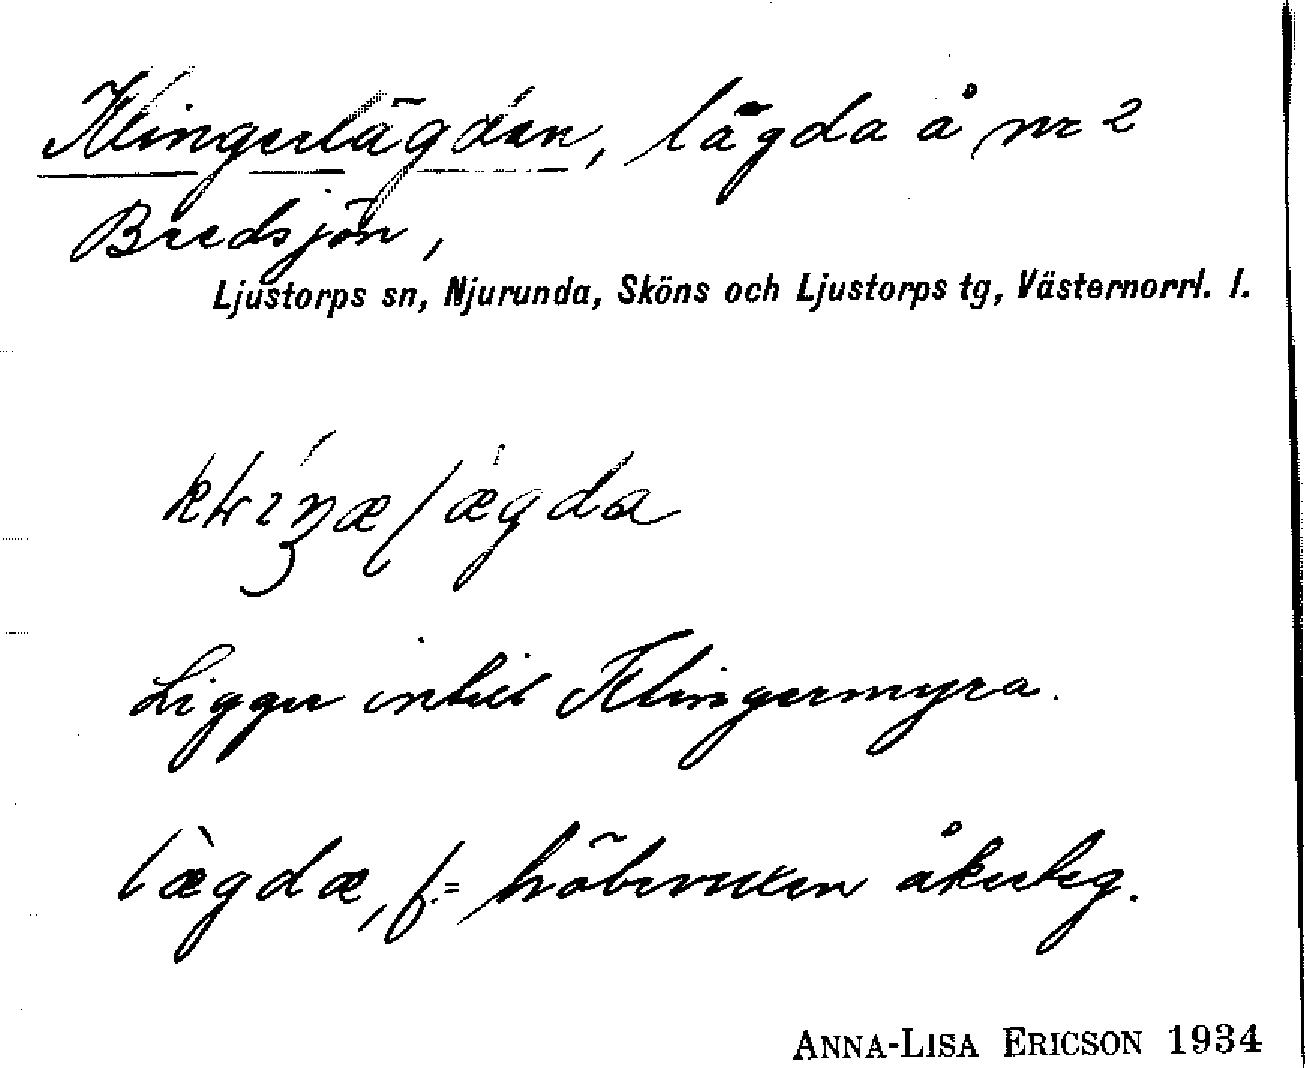 Klingerlägdan, lägda å nr 2
Bredsjön,
Ljustorps sn, Njurunda, Sköns och Ljustorps tg, Västernorrl. l.
Ligger intill Klingermyra.
lægdæ, f. = höbevuxen åkerteg.
ANNA-LISA ERICSON 1934